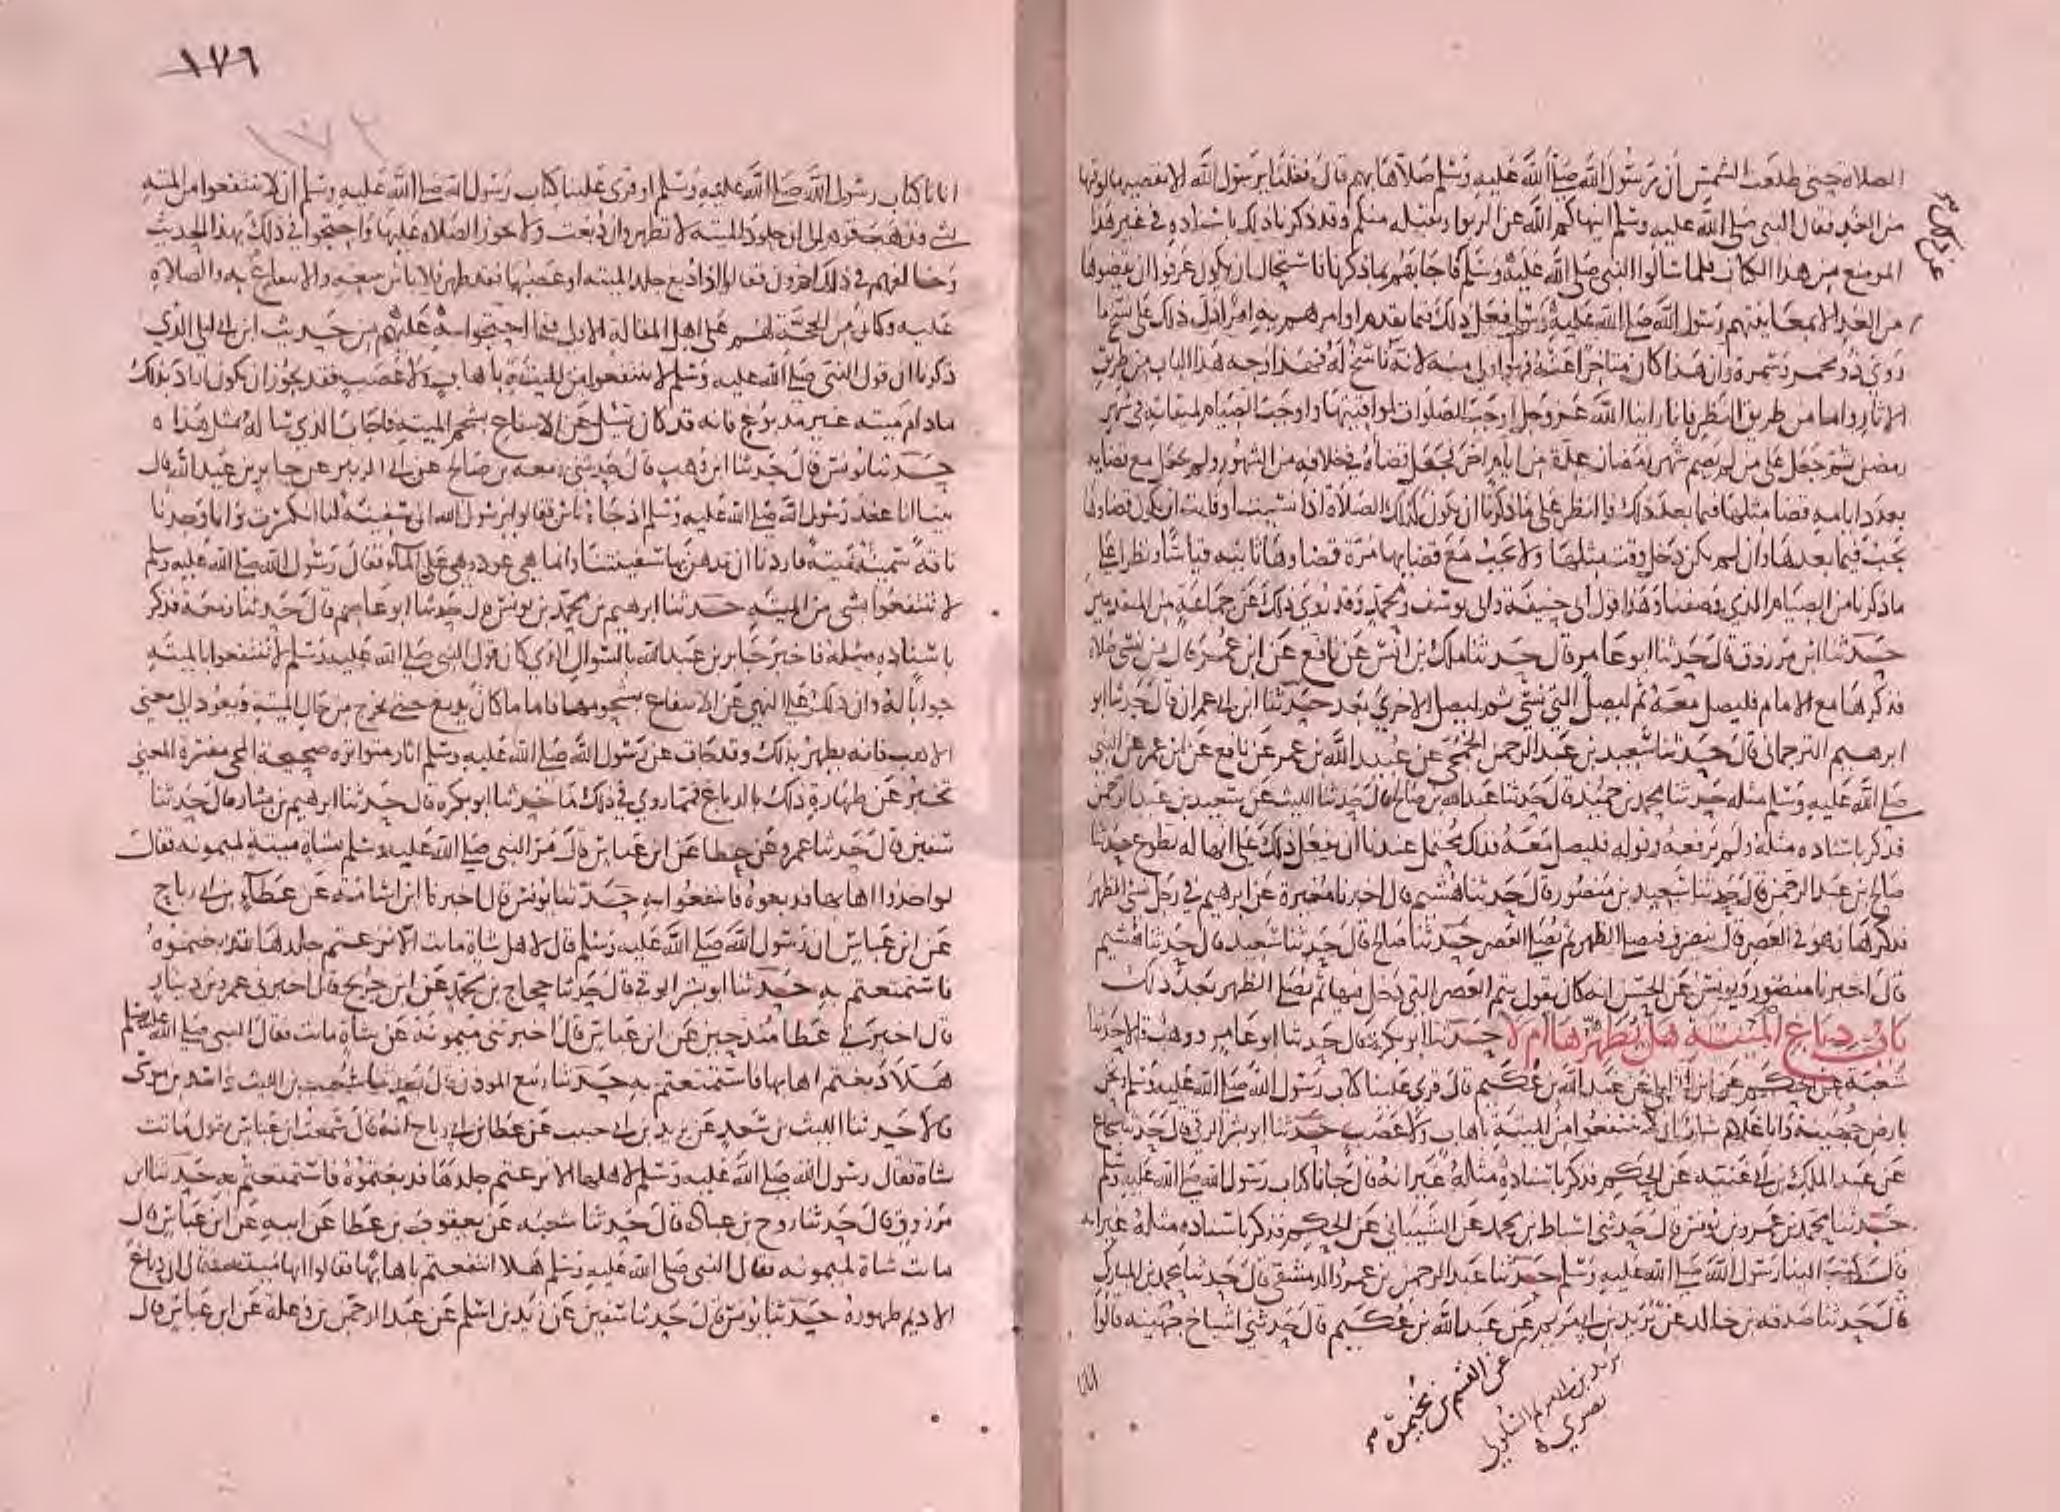 الصلاة حتى طلعت الشمس أن رسول الله صلى الله عليه وسلم صلاها بهم قال فقلنا يرسول الله الا نقضيها لوقتها
من الغد فقال النبي صلى الله عليه وسلم اينهاكم الله عن الربوا ويقبله منكم وقد ذكرنا ذلك باسناده في غير هذا
الموضع من هذا الكتاب فلما سالوا النبي صلى الله عليه وسلم فاجابهم بما ذكرنا استحال ان يكون عرفوا ان يقضوها
من الغد الا بمعاينتهم رسول الله صلى الله عليه وسلم فعل ذلك فيما تقدم او امرهم به امرا فدل ذلك على نسخ ما
روى ذو مخمر وسمرة وان هذا كان متاخرا عنه فهو اولى منه لانه ناسخ له فهذا وجه هذا الباب من طريق
الاثار واما من طريق النظر فانا راينا الله عز وجل اوجب الصلوات لمواقيتها واوجب الصيام لميقاته في شهر
رمضن ثم جعل على من لم يصم شهر رمضان عدة من ايام اخر فجعل قضاه في خلافه من الشهور ولم يجعل مع قضايه
بعدد ايامه قضا مثلها فيما بعد ذلك فالنظر على ما ذكرنا ان يكون كذلك الصلاة اذا نسيت او فاتت ان يكون قضاوها
يجب فيما بعدها وان لم يكن دخل وقت مثلها ولا يجب مع قضايها مرة قضاوها ثانية قياسا ونظرا على
ما ذكرنا من الصيام الذي وصفنا وهذا قول ابي حنيفة وابي يوسف ومحمد وقد روي ذلك عن جماعة من المتقدمين
حدثنا ابن مرزوق قال حدثنا ابو عامر قال حدثنا ملك بن انس عن نافع عن ابن عمر قال من نسي صلاة
فذكرها مع الامام فليصل معه ثم ليصل التي نسي ثم ليصل الاخرى بعد حدثنا ابن ابي عمران قال حدثنا ابو
ابرهيم الترجماني قال حدثنا سعيد بن عبد الرحمن الجمحي عن عبيد الله بن عمر عن نافع عن ابن عمر عن النبي
صلى الله عليه وسلم مثله حدثنا محمد بن حميد قال حدثنا عبد الله بن صالح قال حدثنا الليث عن سعيد بن عبد الرحمن
فذكر باسناده مثله ولم يرفعه وقوله فليصل معه فذلك محتمل عندنا ان يفعل ذلك على انها له تطوع حدثنا
صالح بن عبد الرحمن قال حدثنا سعيد بن منصور قال حدثنا هشيم قال اخبرنا مغيرة عن ابرهيم في رجل نسي الظهر
فذكرها وهو في العصر قال ينصرف فيصلي الظهر ثم يصلي العصر حدثنا صالح قال حدثنا سعيد قال حدثنا هشيم
قال اخبرنا منصور ويونس عن الحسن انه كان يقول يتم العصر التي دخل فيها ثم يصلي الظهر بعد ذلك
باب دباغ الميتة هل يطهرها ام لا حدثنا ابو بكرة قال حدثنا ابو عامر ووهب قالا حدثنا
شعبة عن الحكم عن ابن ابي ليلى عن عبد الله بن عكيم قال قري علينا كتاب رسول الله صلى الله عليه وسلم ونحن
بارض جهينة وانا غلام شاب ان لا تستمتعوا من الميتة باهاب ولا عصب حدثنا ابو بشر الرقي قال حدثنا شجاع
عن عبد الملك بن ابي غنية عن الحكم فذكر باسناده مثله غير انه قال جانا كتاب رسول الله صلى الله عليه وسلم
حدثنا محمد بن عمرو بن يونس قال حدثني اسباط بن محمد عن الشيباني عن الحكم فذكر باسناده مثله غير انه
قال كتب الينا رسول الله صلى الله عليه وسلم حدثنا عبد الرحمن بن عمرو الدمشقي قال حدثنا محمد بن المبارك
قال حدثنا صدقة بن خالد عن يزيد بن ابي مريم عن عبد الله بن عكيم قال حدثني اشياخ جهينة قالوا
عن القسم بن مخيمرة
اتانا
١٧٦
١٧٢
اتانا كتاب رسول الله صلى الله عليه وسلم او قري علينا كتاب رسول الله صلى الله عليه وسلم ان لا تنتفعوا من الميتة
بشي فذهب قوم الى ان جلود الميتة لا تطهر وان دبغت ولا يجوز الصلاة عليها واحتجوا في ذلك بهذا الحديث
وخالفهم في ذلك اخرون فقالوا اذا دبغ جلد الميتة او عصبها فقد طهر فلا باس ببيعه والانتفاع به والصلاة
عليه وكان من الحجة لهم على اهل المقالة الاولى فيما احتجوا به عليهم من حديث ابن ابي ليلى الذي
ذكرنا ان قول النبي صلى الله عليه وسلم لا تنتفعوا من الميتة باهاب ولا عصب فقد يجوز ان يكون اراد بذلك
ما دام ميتة غير مدبوغ فانه قد كان يسئل عن الانتفاع بشحم الميتة فاجاب الذي ساله بمثل هذا
حدثنا يونس قال حدثنا ابن وهب قال حدثني زمعة بن صالح عن ابي الزبير عن جابر بن عبد الله قال
بينا انا عند رسول الله صلى الله عليه وسلم اذ جاه ناس فقالوا يرسول الله ان سفينة لنا انكسرت وانا وجدنا
ناقة سمينة ميتة فاردنا ان ندهن بها سفينتنا وانما هي عود وهي على الماء فقال رسول الله صلى الله عليه وسلم
لا تنتفعوا بشي من الميتة حدثنا ابرهيم بن محمد بن يونس قال حدثنا ابو عاصم قال حدثنا زمعة فذكر
باسناده مثله فاخبر جابر بن عبد الله بالسوال الذي كان قول النبي صلى الله عليه وسلم لا تنتفعوا بالميتة
جوابا له وان ذلك على النهي عن الانتفاع بشحومها فاما ما كان يدبغ حتى يخرج من حال الميتة ويعود الى معنى
الاهب فانه يطهر بذلك وقد جات عن رسول الله صلى الله عليه وسلم اثار متواترة صحيحة المجي مفسرة المعنى
تخبر عن طهارة ذلك بالدباغ فمما روي في ذلك ما حدثنا ابو بكرة قال حدثنا ابرهيم بن بشار قال حدثنا
سفين قال حدثنا عمرو عن عطا عن ابن عباس قال مر النبي صلى الله عليه وسلم بشاة ميتة لميمونة فقال
لو اخذوا اهابها فدبغوه فانتفعوا به حدثنا يونس قال اخبرنا ابن اسامة عن عطاء بن ابي رباح
عن ابن عباس ان رسول الله صلى الله عليه وسلم قال لاهل شاة ماتت الا نزعتم جلدها فدبغتموه
فاستمتعتم به حدثنا ابو بشر الرقي قال حدثنا حجاج بن محمد عن ابن جريج قال اخبرني عمرو بن دينار
قال اخبرني عطا منذ حين عن ابن عباس قال اخبرتني ميمونة عن شاة ماتت فقال النبي صلى الله عليه وسلم
هلا دبغتم اهابها فاستمتعتم به حدثنا ربيع الموذن قال حدثنا شعيب بن الليث واسد بن موسى
قالا حدثنا الليث بن سعد عن يزيد بن ابي حبيب عن عطا بن ابي رباح انه قال سمعت ابن عباس يقول ماتت
شاة فقال رسول الله صلى الله عليه وسلم لاهلها الا نزعتم جلدها فدبغتموه فاستمتعتم به حدثنا ابن
مرزوق قال حدثنا روح بن عبادة قال حدثنا شعبة عن يعقوب بن عطا عن ابيه عن ابن عباس قال
ماتت شاة لميمونة فقال النبي صلى الله عليه وسلم هلا انتفعتم باهابها فقالوا انها ميتة فقال ان دباغ
الاديم طهوره حدثنا يونس قال حدثنا سفين عن زيد بن اسلم عن عبد الرحمن بن وعلة عن ابن عباس قال